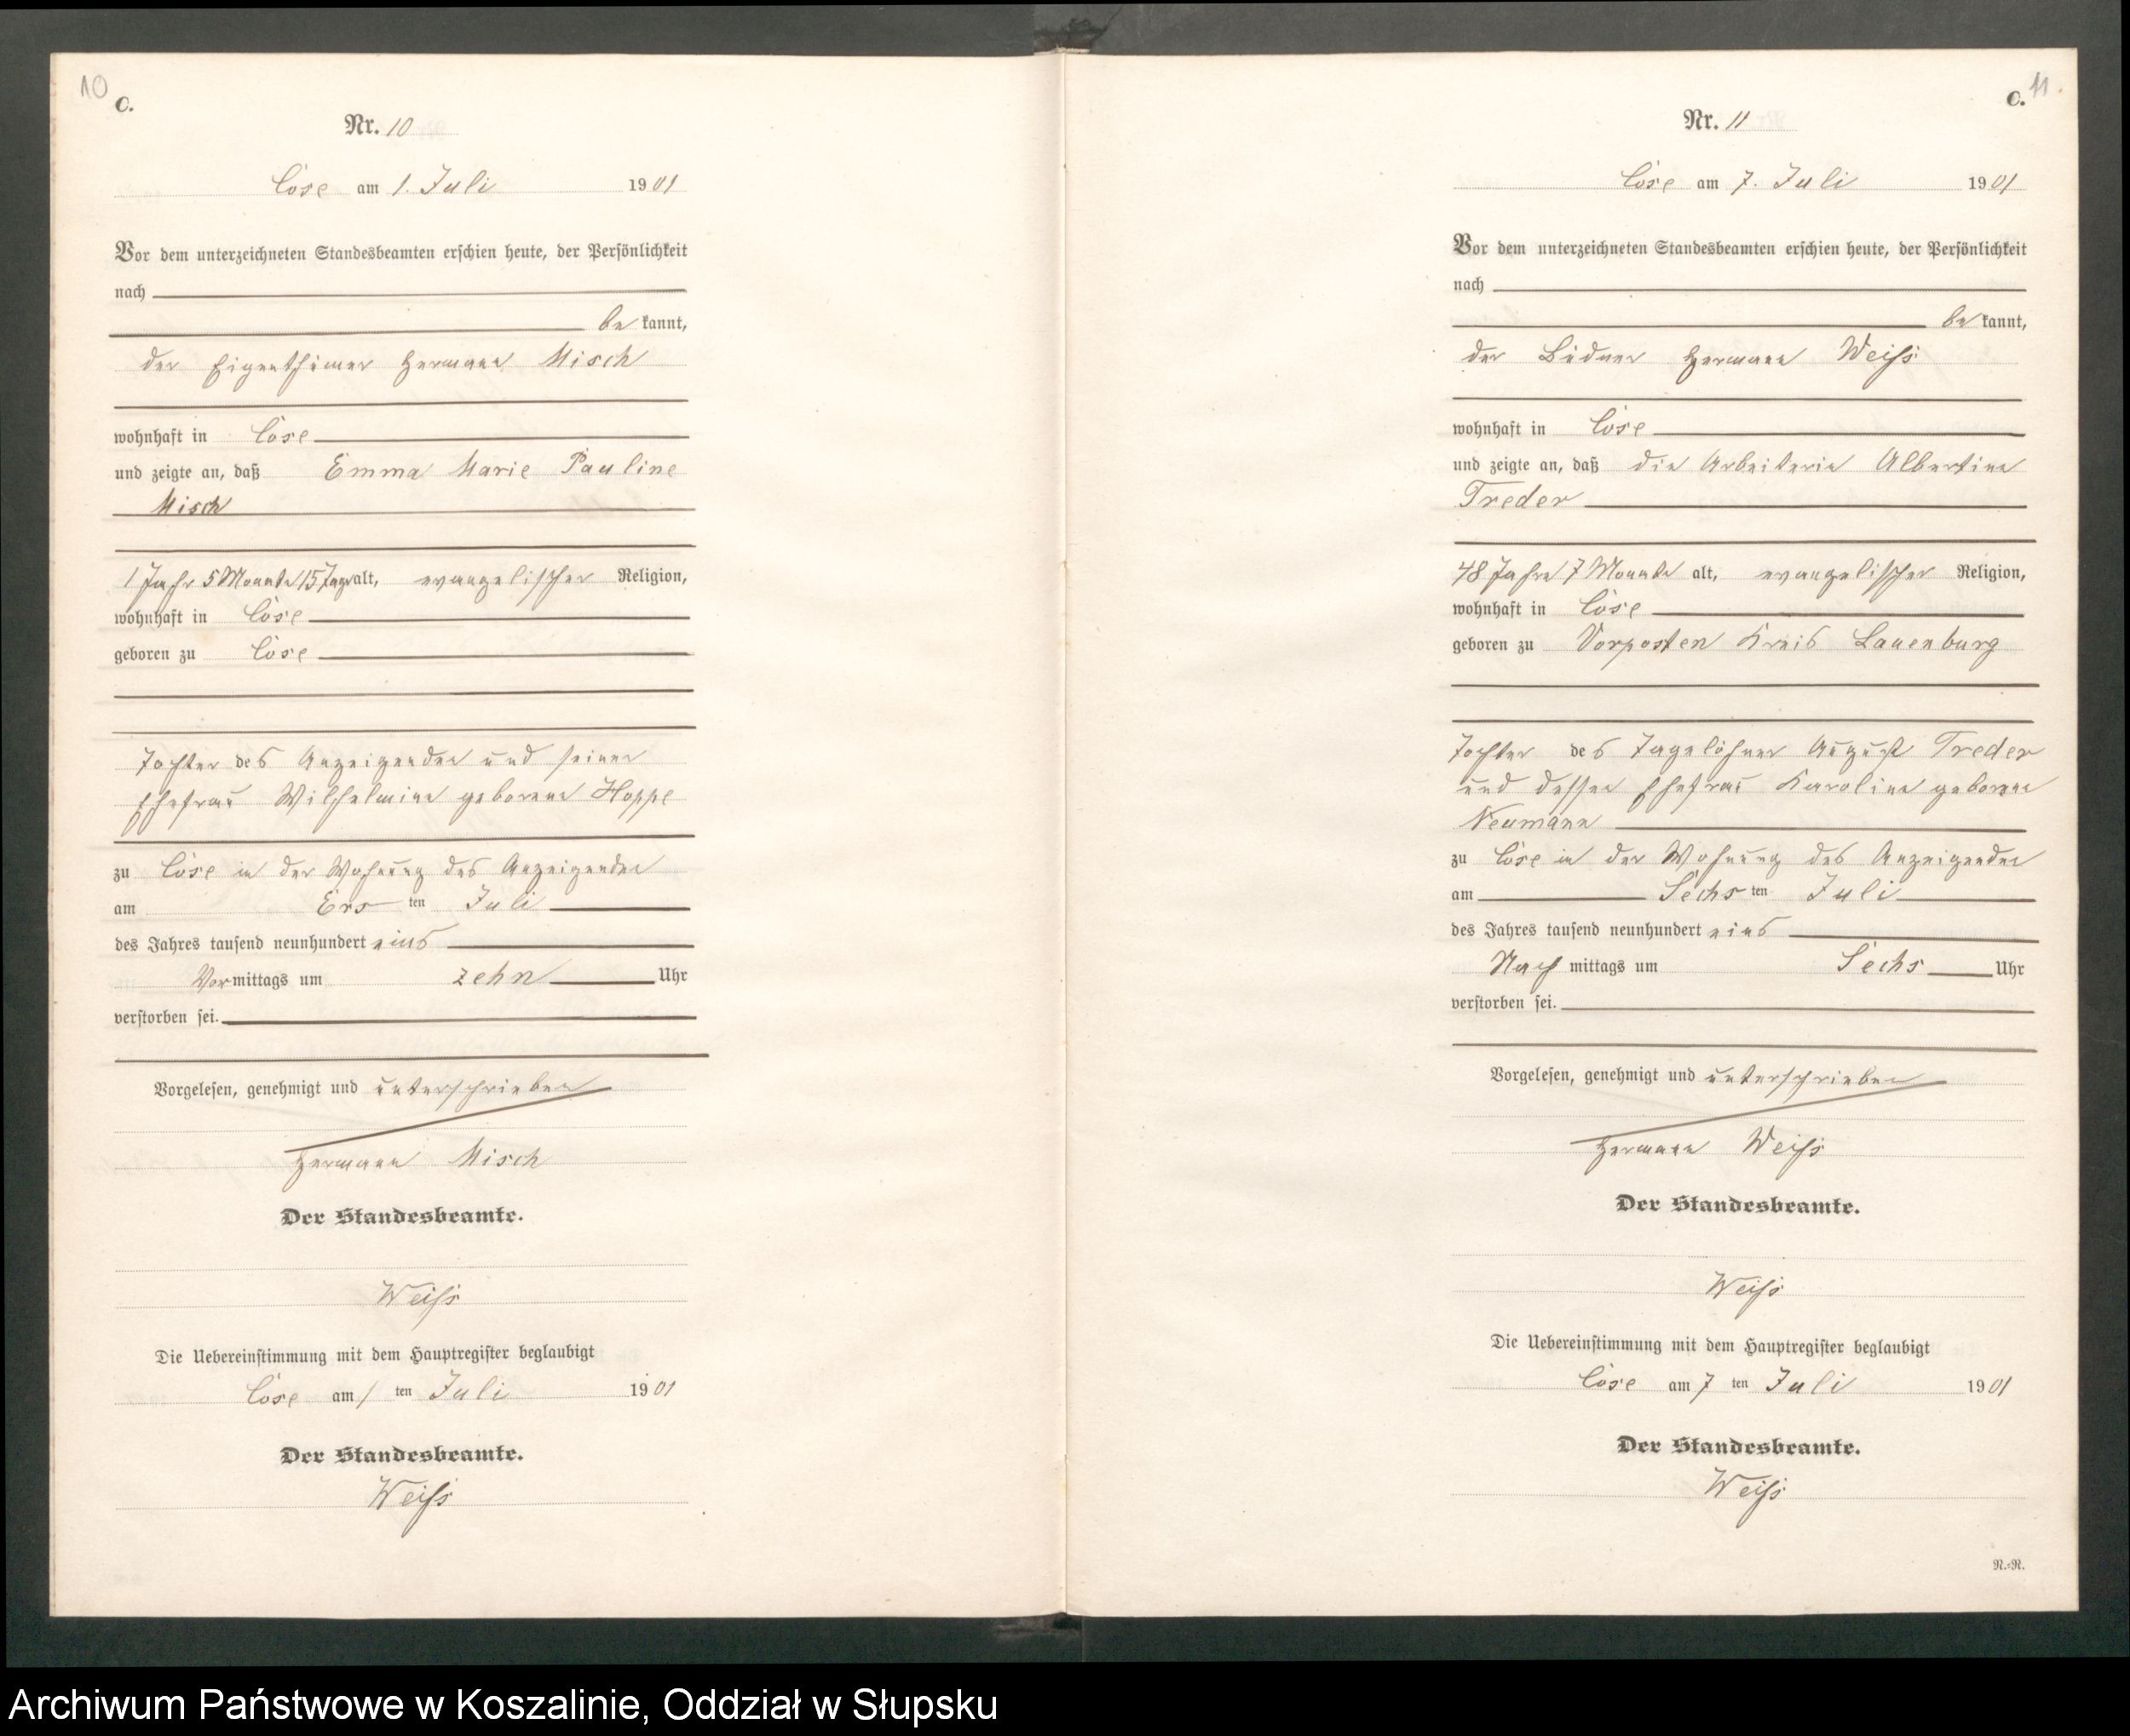 10
C.
Nr. 10
Cöse am 1. Juli 1901
Vor dem unterzeichneten Standesbeamten erschien heute, der Persönlichkeit
nach
bekannt,
der Eigenthümer Hermann Misch
wohnhaft in Cöse
und zeigte an, daß Emma Marie Pauline
Misch
1 Jahr 5 Monate 15 Tage alt, evangelischer Religion,
wohnhaft in Cöse
geboren zu Cöse
Tochter des Anzeigenden und seiner
Ehefrau Wilhelmine geborene Hoppe
zu Cöse in der Wohnung des Anzeigenden
am Ersten Juli
des Jahres tausend neunhundert eins
Vormittags um zehn Uhr
verstorben sei.
Vorgelesen, genehmigt und unterschrieben
Hermann Misch
Der Standesbeamte.
Weiß
Die Uebereinstimmung mit dem Hauptregister beglaubigt
Cöse am 1 ten Juli 1901
Der Standesbeamte.
Weiß
11.
C.
Nr. 11
Cöse am 7. Juli 1901
Vor dem unterzeichneten Standesbeamten erschien heute, der Persönlichkeit
nach
bekannt,
der Büdner Hermann Weiß
wohnhaft in Cöse
und zeigte an, daß die Arbeiterin Albertine
Treder
48 Jahre 7 Monate alt, evangelischer Religion,
wohnhaft in Cöse
geboren zu Vorposten Kreis Lauenburg
Tochter des Tagelöhner August Treder
und dessen Ehefrau Karoline geborene
Neumann
zu Cöse in der Wohnung des Anzeigenden
am Sechsten Juli
des Jahres tausend neunhundert eins
Nachmittags um Sechs Uhr
verstorben sei.
Vorgelesen, genehmigt und unterschrieben
Hermann Weiß
Der Standesbeamte.
Weiß
Die Uebereinstimmung mit dem Hauptregister beglaubigt
Cöse am 7 ten Juli 1901
Der Standesbeamte.
Weiß
N.-N.
Archiwum Państwowe w Koszalinie, Oddział w Słupsku